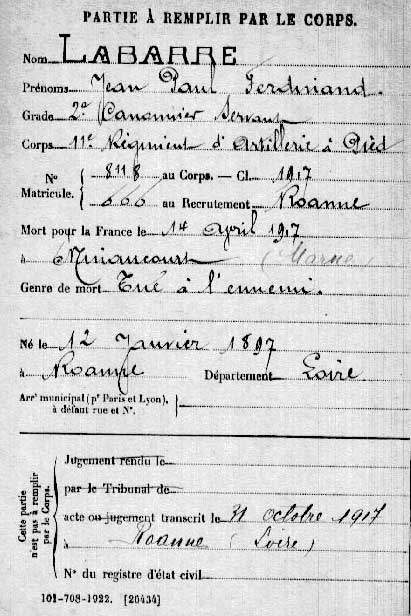 PARTIE À REMPLIR PAR LE CORPS.
Nom LABARRE
Prénoms Jean Paul Ferdinand.
Grade 2e Canonnier Servant
Corps 11e Régiment d'Artillerie à Pied
N° Matricule. { 8118 au Corps. — Cl. 1917
666 au Recrutement Roanne
Mort pour la France le 14 April 1917
à Minaucourt (Marne)
Genre de mort Tué à l'ennemi.
Né le 12 Janvier 1897
à Roanne Département Loire
Arrt municipal (pr Paris et Lyon), à défaut rue et N°.
Cette partie n'est pas à remplir par le Corps.
Jugement rendu le
par le Tribunal de
acte ou jugement transcrit le 31 octobre 1917
à Roanne (Loire)
N° du registre d'état civil
101-708-1922. [20434]